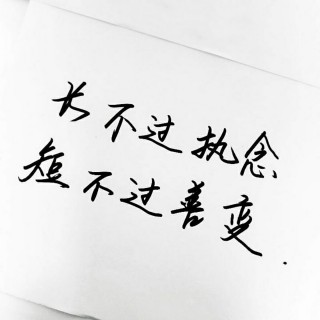 长不过执念
短不过善变.